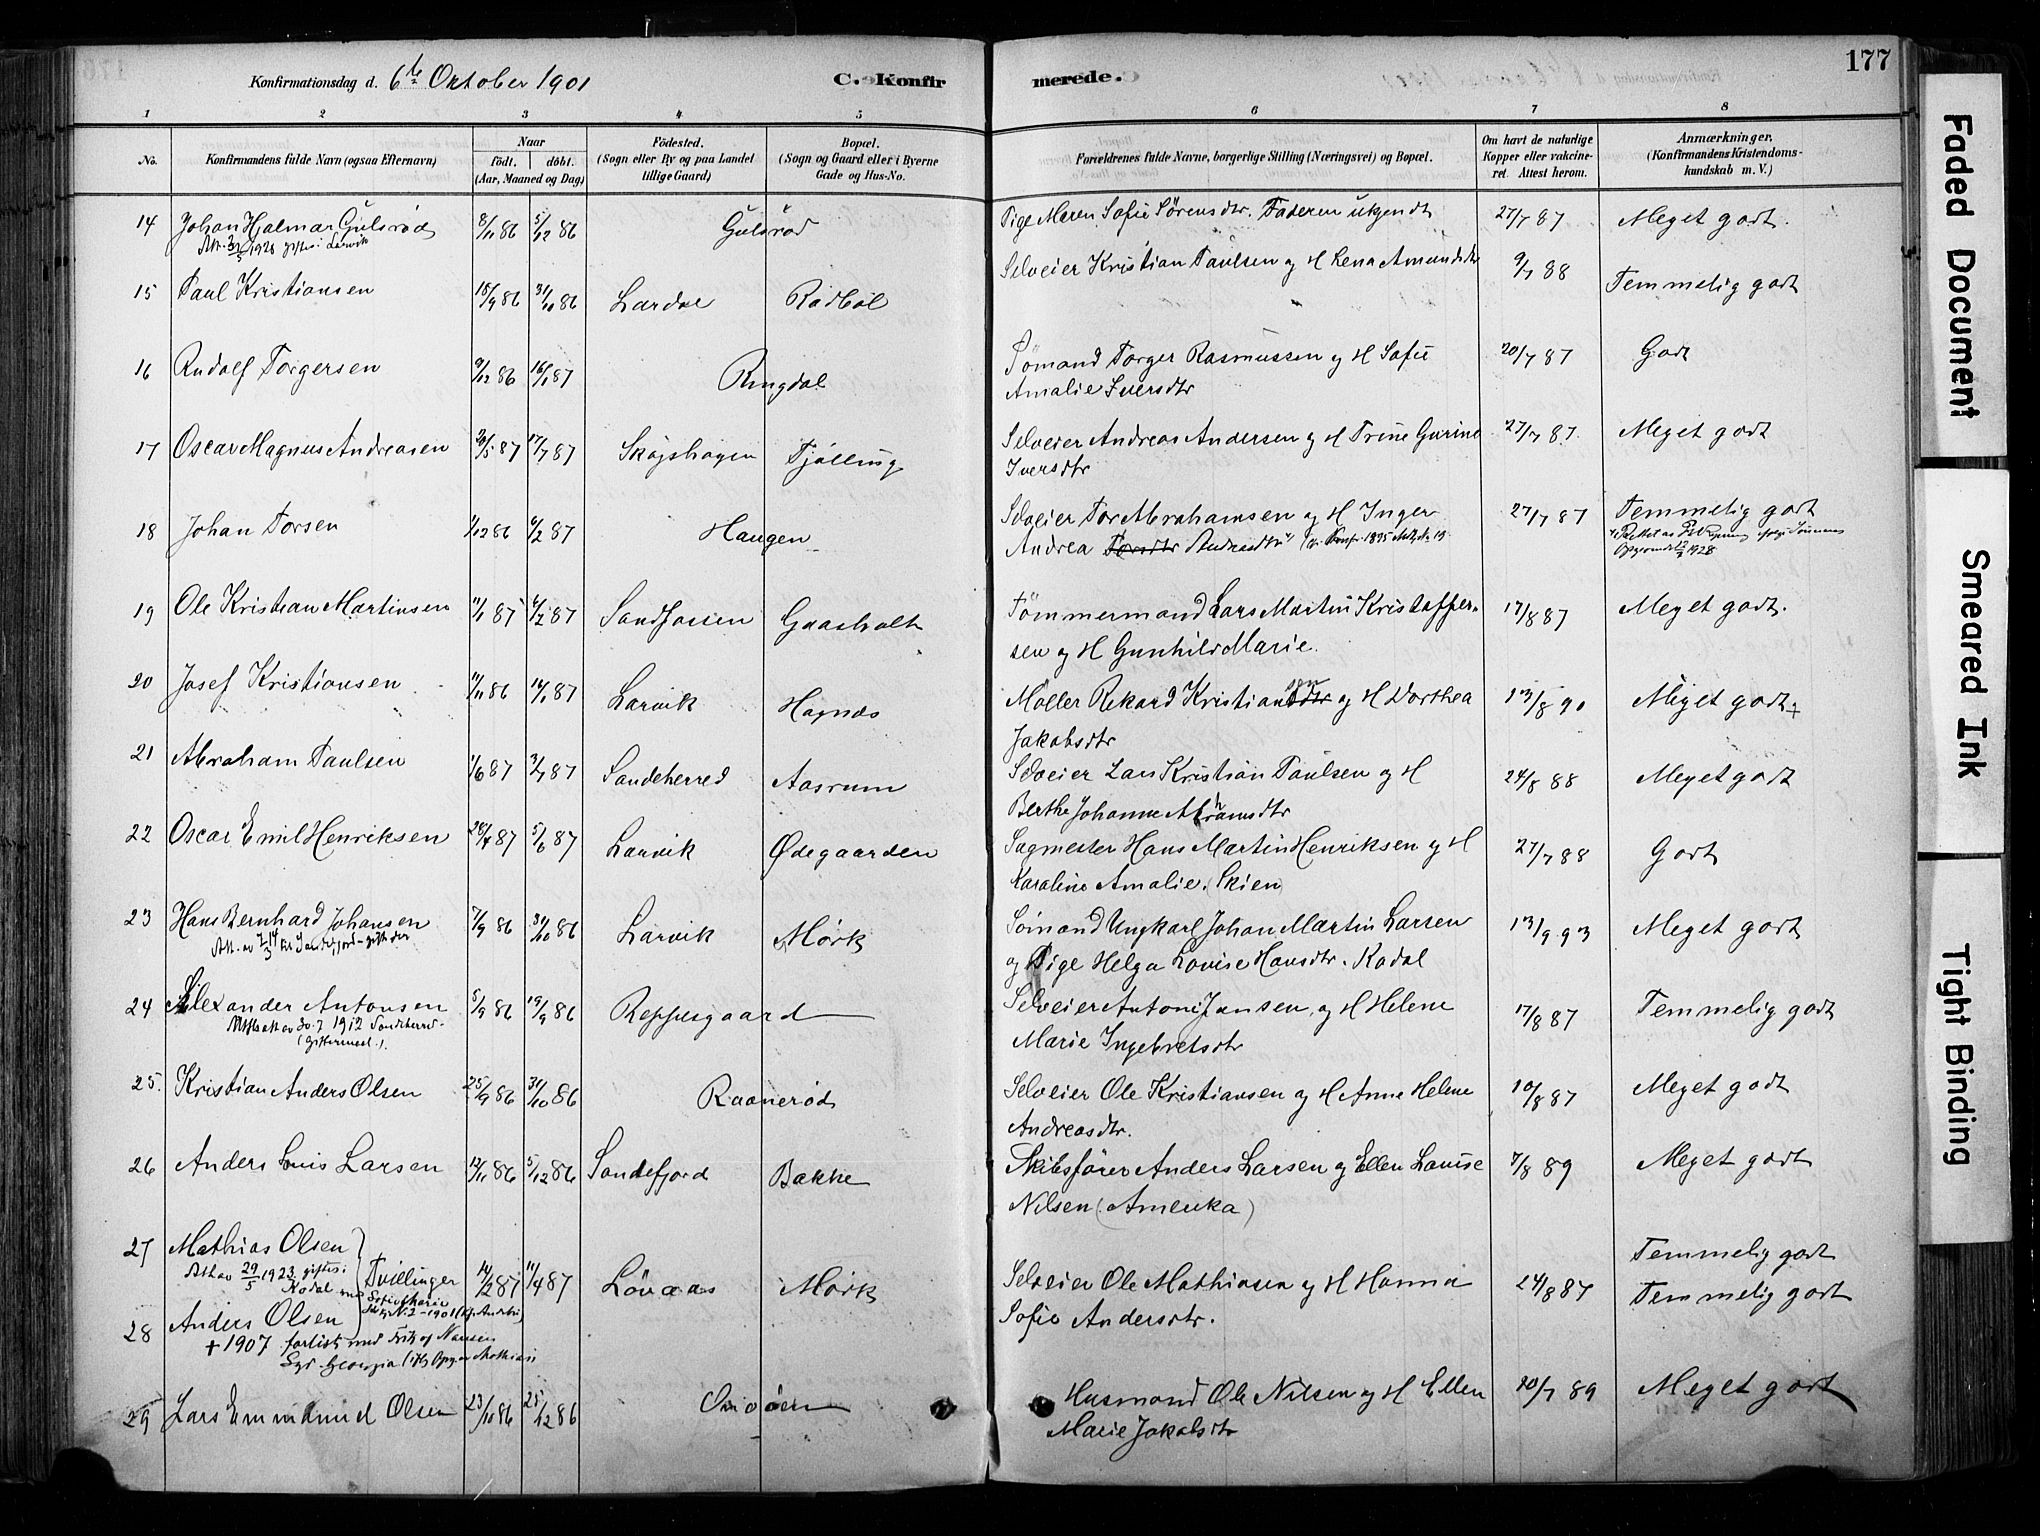 Konfirmationsdag d. 6te Oktober 1901
C. Konfirmerede.
177
1 2 3 4 5 6 7 8
No.
Konfirmandens fulde Navn (ogsaa Efternavn)
Naar
födt. döbt.
(Aar, Maaned og Dag)
Födested.
(Sogn eller By og paa Landet
tillige Gaard)
Bopæl.
(Sogn og Gaard eller i Byerne
Gade og Hus-No.
Forældrenes fulde Navne, borgerlige Stilling (Næringsvei) og Bopæl.
Om havt de naturlige
Kopper eller vakcine-
ret. Attest herom.
Anmærkninger.
(Konfirmandens Kristendoms-
kundskab m. V.)
14 Johan Hjalmar Gulsrød 8/11 86 5/12 86 Gulsrød Pige Maren Sofie Sørensdtr. Faderen ukjendt 27/7 87 Meget godt.
1928 giftes i Larvik
15 Paul Kristiansen 18/9 86 31/10 86 Lardal Rødbøl Selveier Kristian Paulsen og H Lena Amundsdtr 9/7 88 Temmelig godt
16 Rudolf Torgersen 9/12 86 16/1 87 Ringdal Sømand Torger Rasmussen og H Sofie
Amalie Iversdtr 20/7 87 Godt
17 Oscar Magnus Andreasen 20/5 87 17/7 87 Skojshagen Tjølling Selveier Andreas Andersen og H Trine Gurine
Iversdtr 27/7 87. Meget godt
18 Johan Torsen 1/12 86 6/2 87 Haugen Selveier Tor Abrahamsen og H Inger
Andrea Torsdtr Andreasdtr 27/7 87 Temmelig godt
1928
19 Ole Kristian Martinsen 11/1 87 6/2 87 Sandfossen Gaasholt Tømmermand Lars Martin Kristoffer-
sen og H Gunhild Marie. 17/8 87 Meget godt.
20 Josef Kristiansen 11/11 86 16/1 87 Larvik Hagnæs Møller Rikard Kristiansdtr sen og H Dorthea
Jakobsdtr 13/8 90 Meget godt +
21 Abraham Paulsen 1/6 87 3/7 87 Sandeherred Aasrum Selveier Lars Kristian Paulsen og H
Berthe Johanne Abramsdtr 24/8 88 Meget godt
22 Oscar Emil Henriksen 28/4 87 5/6 87 Larvik Ødegaarden Sagmester Hans Martin Henriksen og H
Karoline Amalie. (Skien) 27/7 88 Godt
23 Hans Bernhard Johansen 7/9 86 31/10 86 Larvik Mørk Sømand Ungkarl Johan Martin Larsen
og Pige Helga Lovise Hansdtr. Kodal 13/9 93 Meget godt
24 Alexander Antonsen 5/9 86 19/9 86 Reppesgaard Selveier Anton Jansen og H Helene
Marie Ingebretsdtr 17/8 87 Temmelig godt
30.7 1912 Sandeherred
25. Kristian Anders Olsen 25/9 86 31/10 86 Raanerød Selveier Ole Kristiansen og H Anne Helene
Andreasdtr. 10/8 87 Meget godt
26 Anders Louis Larsen 12/11 86 5/12 86 Sandefjord Bakke Skibsfører Anders Larsen og Ellen Lauise
Nilsen (Amerika) 7/8 89 Meget godt
27 Mathias Olsen Temmelig godt
Att av 29/5 1923 giftes i
Kodal
Tvillinger 14/2 87 11/4 87 Løvaas Mørk Selveier Ole Mathiasen og H Hanna
Sofie Andersdtr. 24/8 87 Temmelig godt
28 Anders Olsen
+ 1907 forlist med Fritjof Nansen
Syd Georgia
29 Lars Emmanuel Olsen 23/11 86 25/12 86 Husmand Ole Nilsen og H Ellen
Marie Jakobsdtr 20/7 89 Meget godt
Faded Document
Smeared Ink
Tight Binding